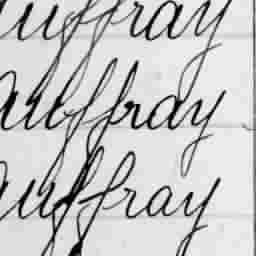 auffray
auffray
auffray